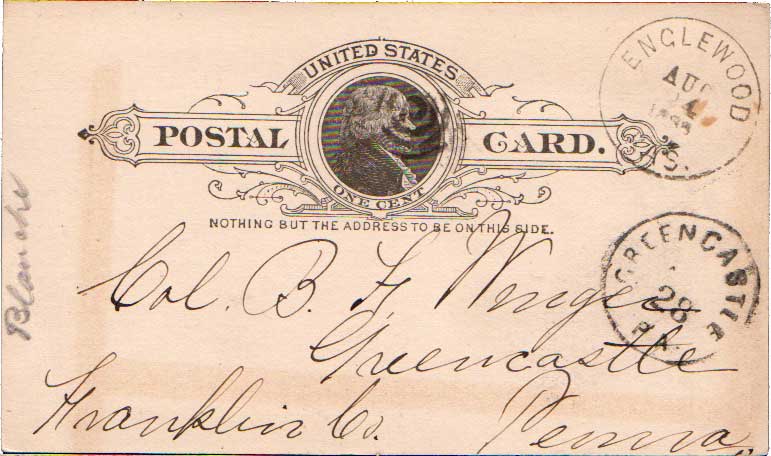 UNITED STATES
POSTAL CARD.
ONE CENT
NOTHING BUT THE ADDRESS TO BE ON THIS SIDE.
ENGLEWOOD
AUG
24
GREENCASTLE
28
PA.
Col. B. F. Winger
Greencastle
Franklin Co. Penna.
Blanche